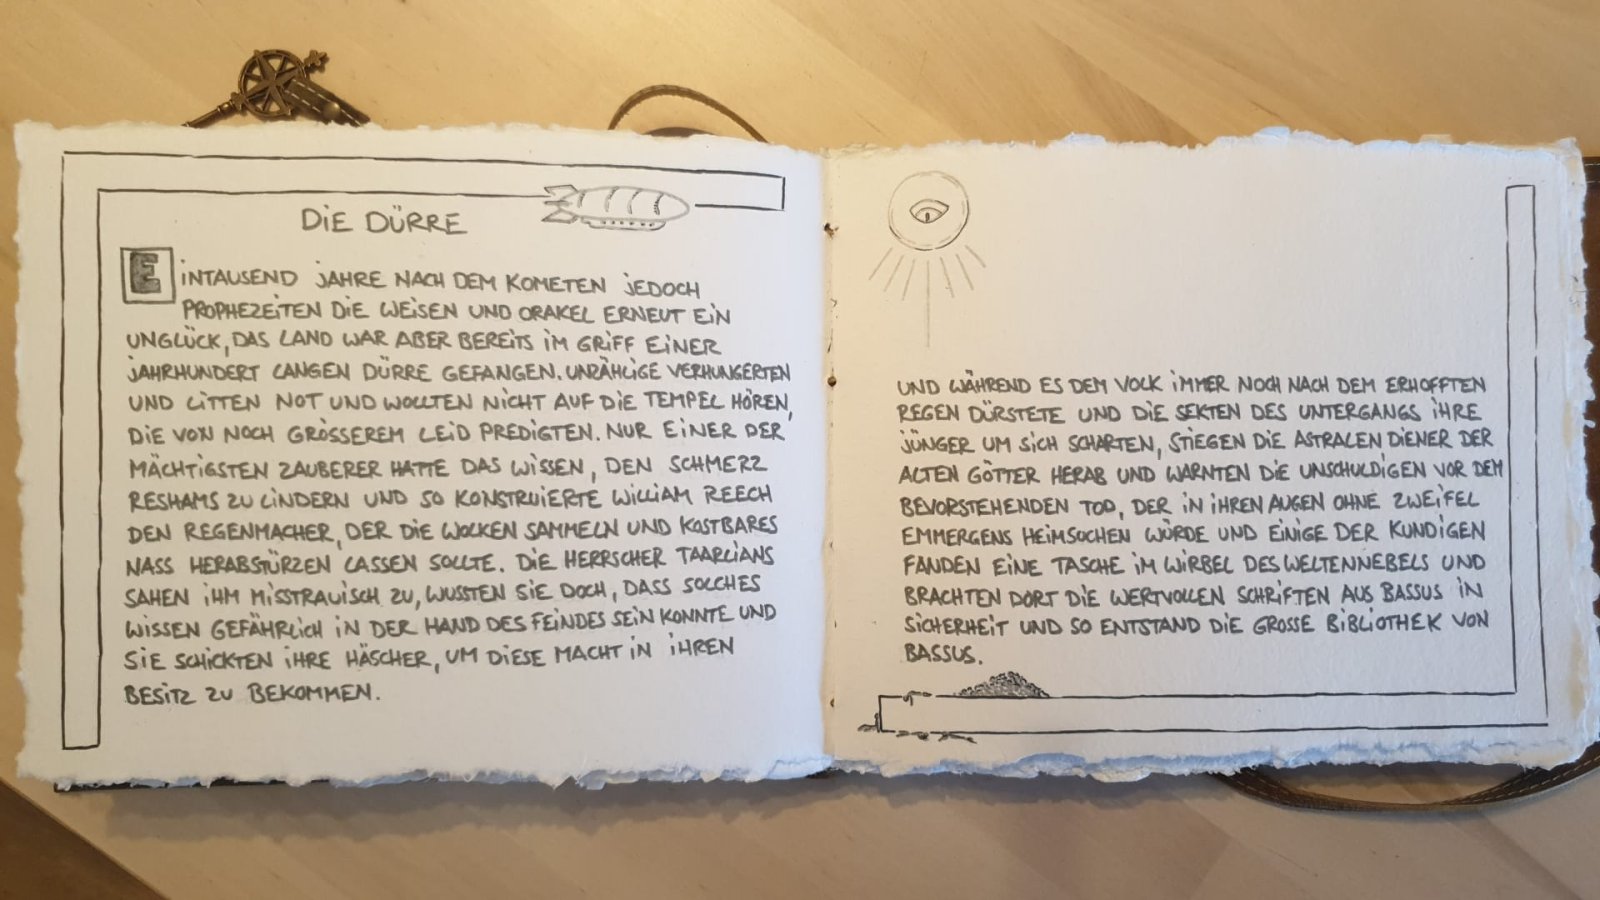 DIE DÜRRE
EINTAUSEND JAHRE NACH DEM KOMETEN JEDOCH
PROPHEZEITEN DIE WEISEN UND ORAKEL ERNEUT EIN
UNGLÜCK, DAS LAND WAR ABER BEREITS IM GRIFF EINER
JAHRHUNDERT LANGEN DÜRRE GEFANGEN. UNZÄHLIGE VERHUNGERTEN
UND LITTEN NOT UND WOLLTEN NICHT AUF DIE TEMPEL HÖREN,
DIE VON NOCH GRÖSSEREM LEID PREDIGTEN. NUR EINER DER
MÄCHTIGSTEN ZAUBERER HATTE DAS WISSEN, DEN SCHMERZ
RESHAMS ZU LINDERN UND SO KONSTRUIERTE WILLIAM REECH
DEN REGENMACHER, DER DIE WOLKEN SAMMELN UND KOSTBARES
NASS HERABSTÜRZEN LASSEN SOLLTE. DIE HERRSCHER TAARLIANS
SAHEN IHM MISSTRAUISCH ZU, WUSSTEN SIE DOCH, DASS SOLCHES
WISSEN GEFÄHRLICH IN DER HAND DES FEINDES SEIN KONNTE UND
SIE SCHICKTEN IHRE HÄSCHER, UM DIESE MACHT IN IHREN
BESITZ ZU BEKOMMEN.
UND WÄHREND ES DEM VOLK IMMER NOCH NACH DEM ERHOFFTEN
REGEN DÜRSTETE UND DIE SEKTEN DES UNTERGANGS IHRE
JÜNGER UM SICH SCHARTEN, STIEGEN DIE ASTRALEN DIENER DER
ALTEN GÖTTER HERAB UND WARNTEN DIE UNSCHULDIGEN VOR DEM
BEVORSTEHENDEN TOD, DER IN IHREN AUGEN OHNE ZWEIFEL
EMMERGENS HEIMSUCHEN WÜRDE UND EINIGE DER KUNDIGEN
FANDEN EINE TASCHE IM WIRBEL DES WELTENNEBELS UND
BRACHTEN DORT DIE WERTVOLLEN SCHRIFTEN AUS BASSUS IN
SICHERHEIT UND SO ENTSTAND DIE GROSSE BIBLIOTHEK VON
BASSUS.